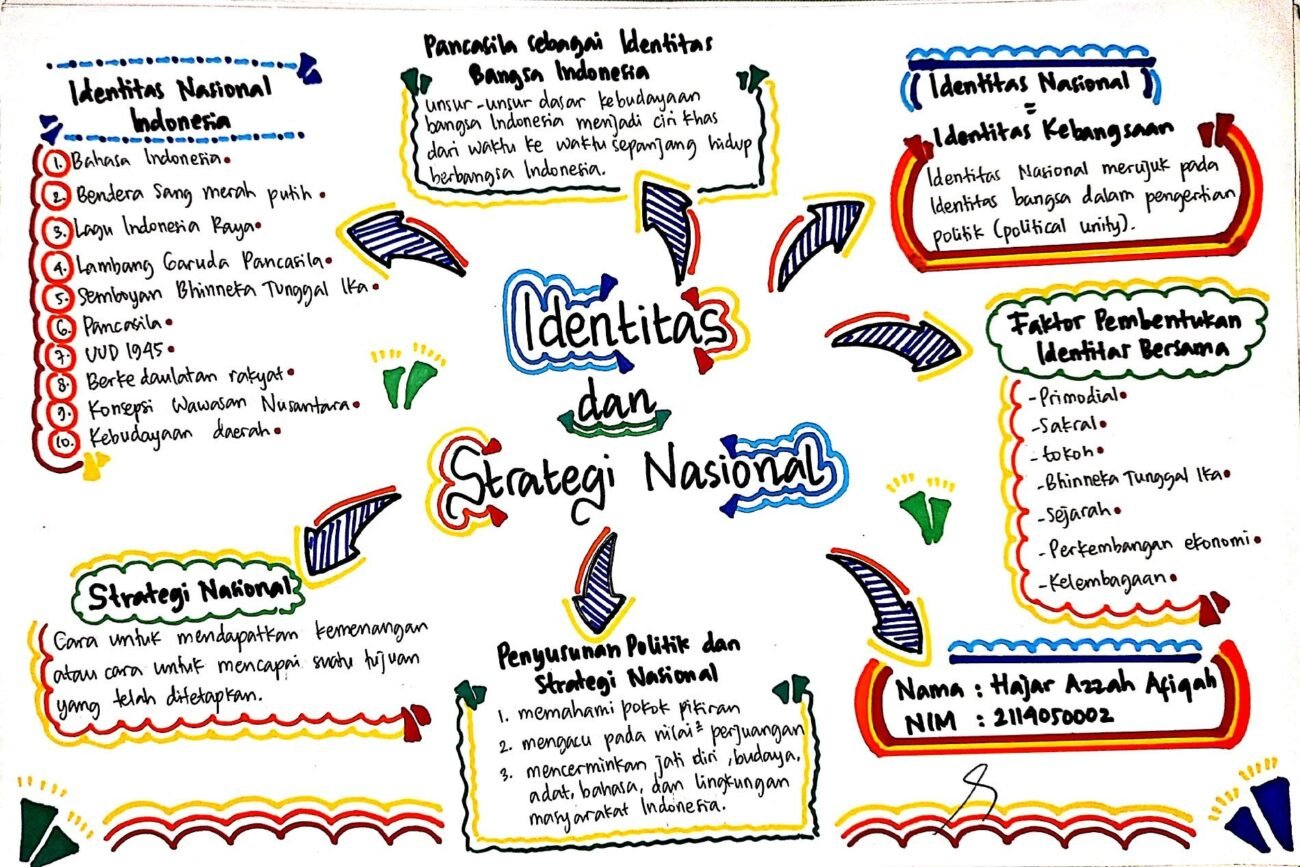 Identitas Nasional
Indonesia
1. Bahasa Indonesia.
2. Bendera sang merah putih.
3. Lagu Indonesia Raya.
4. Lambang Garuda Pancasila.
5. Semboyan Bhinneka Tunggal Ika.
6. Pancasila.
7. UUD 1945.
8. Berkedaulatan rakyat.
9. Konsepsi Wawasan Nusantara.
10. Kebudayaan daerah.
Pancasila sebagai Identitas
Bangsa Indonesia
unsur-unsur dasar kebudayaan
bangsa Indonesia menjadi ciri khas
dari waktu ke waktu sepanjang hidup
berbangsa Indonesia.
Identitas Nasional
=
Identitas Kebangsaan
Identitas Nasional merujuk pada
Identitas bangsa dalam pengertian
politik (political unity).
Identitas
dan
Strategi Nasional
Faktor Pembentukan
Identitas Bersama
- Primodial.
- Sakral.
- tokoh.
- Bhinneka Tunggal Ika.
- Sejarah.
- Perkembangan ekonomi.
- Kelembagaan.
Strategi Nasional
Cara untuk mendapatkan kemenangan
atau cara untuk mencapai suatu tujuan
yang telah ditetapkan.
Penyusunan Politik dan
Strategi Nasional
1. memahami pokok pikiran
2. mengacu pada nilai² perjuangan
3. mencerminkan jati diri, budaya,
adat, bahasa, dan lingkungan
masyarakat Indonesia.
Nama : Hajar Azzah Afiqah
NIM : 2114050002